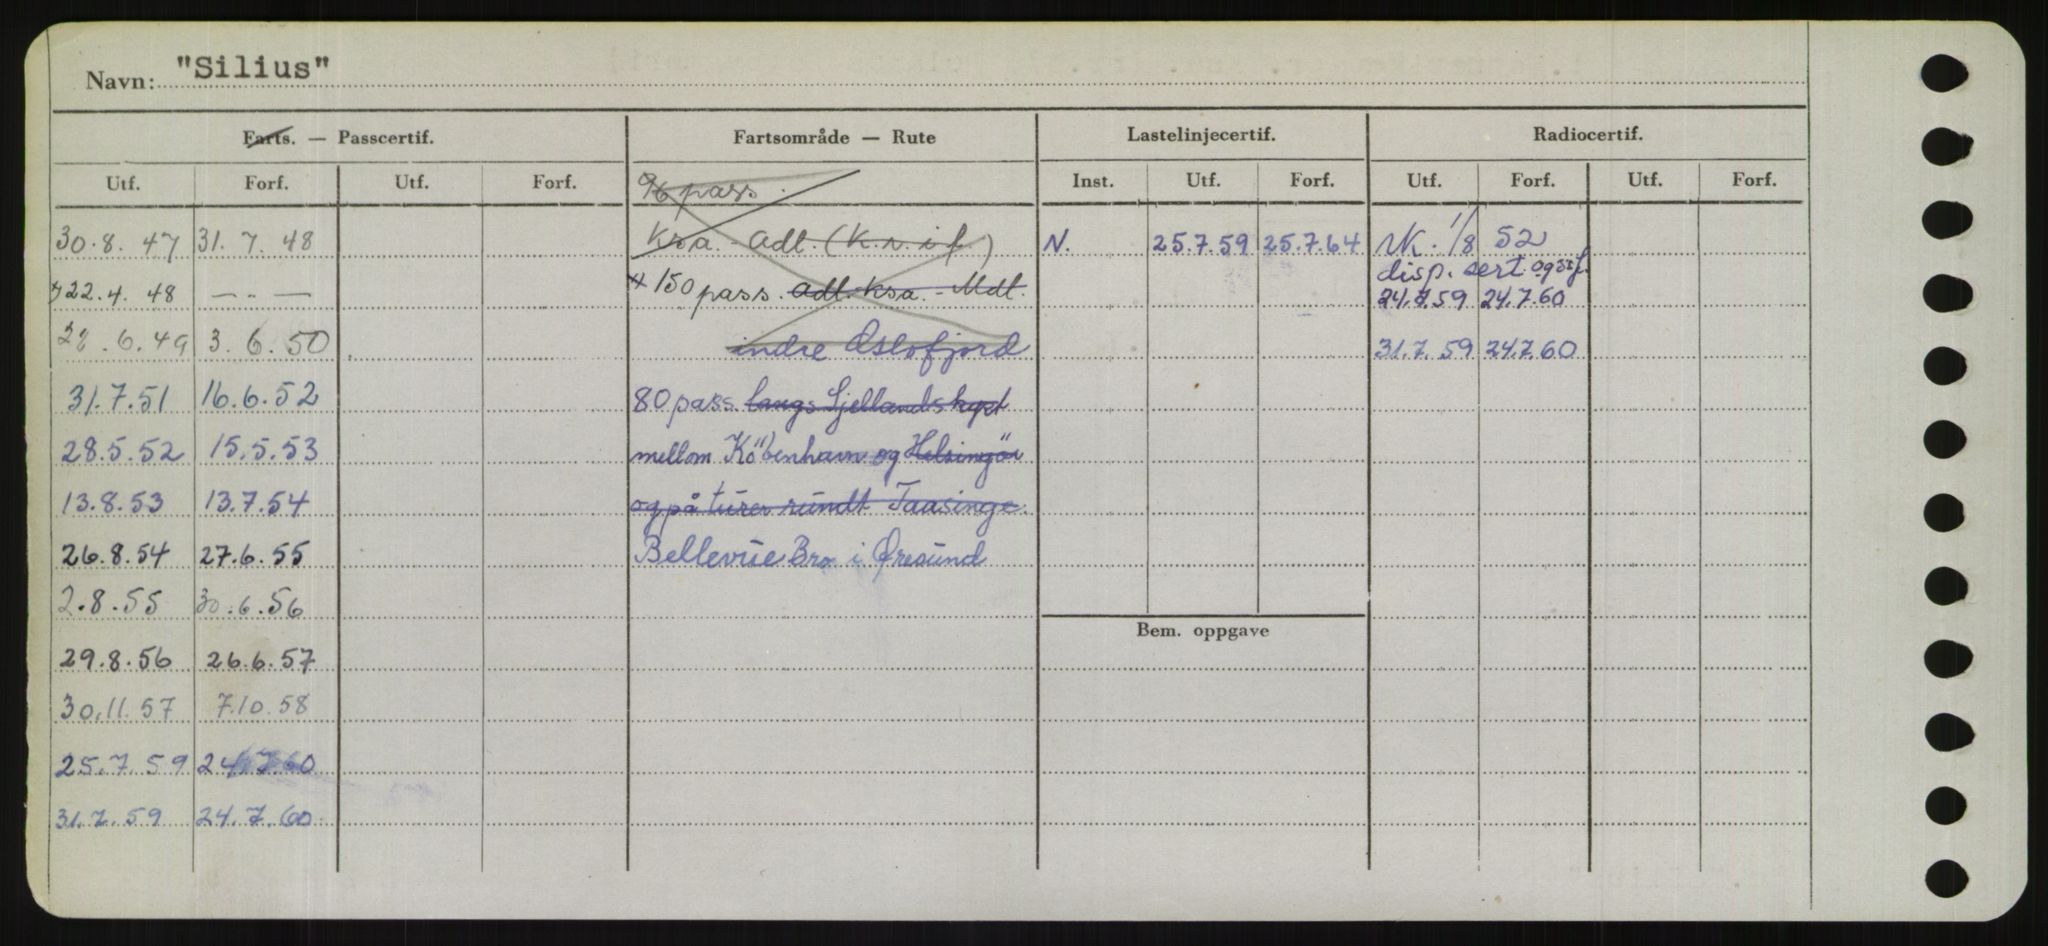 Navn: "Silius"
Farts. — Passcertif. Fartsområde — Rute Lastelinjecertif. Radiocertif.
Utf. Forf. Utf. Forf. 96 pass. Inst. Utf. Forf. Utf. Forf. Utf. Forf.
30.8.47 31.7.48 Ksa. - Adt. (K.n.i f.) N. 25.7.59 25.7.64 UK. 1/8 52
disp. sert.
22.4.48 — " — 150 pass. Adt. Ksa. - Mdt. 24.7.59 24.7.60
.6.49 3.6.50 indre Oslofjord 31.7.59 24.7.60
31.7.51 16.6.52 80 pass. langs Sjellands kyst
28.5.52 15.5.53 mellom Köbenhavn og Helsingör
13.8.53 13.7.54 og på turer rundt Taasinge.
26.8.54 27.6.55 Bellevue Bro i Øresund
2.8.55 30.6.56
Bem. oppgave
29.8.56 26.6.57
30.11.57 7.10.58
25.7.59 24.7.60
31.7.59 24.7.60